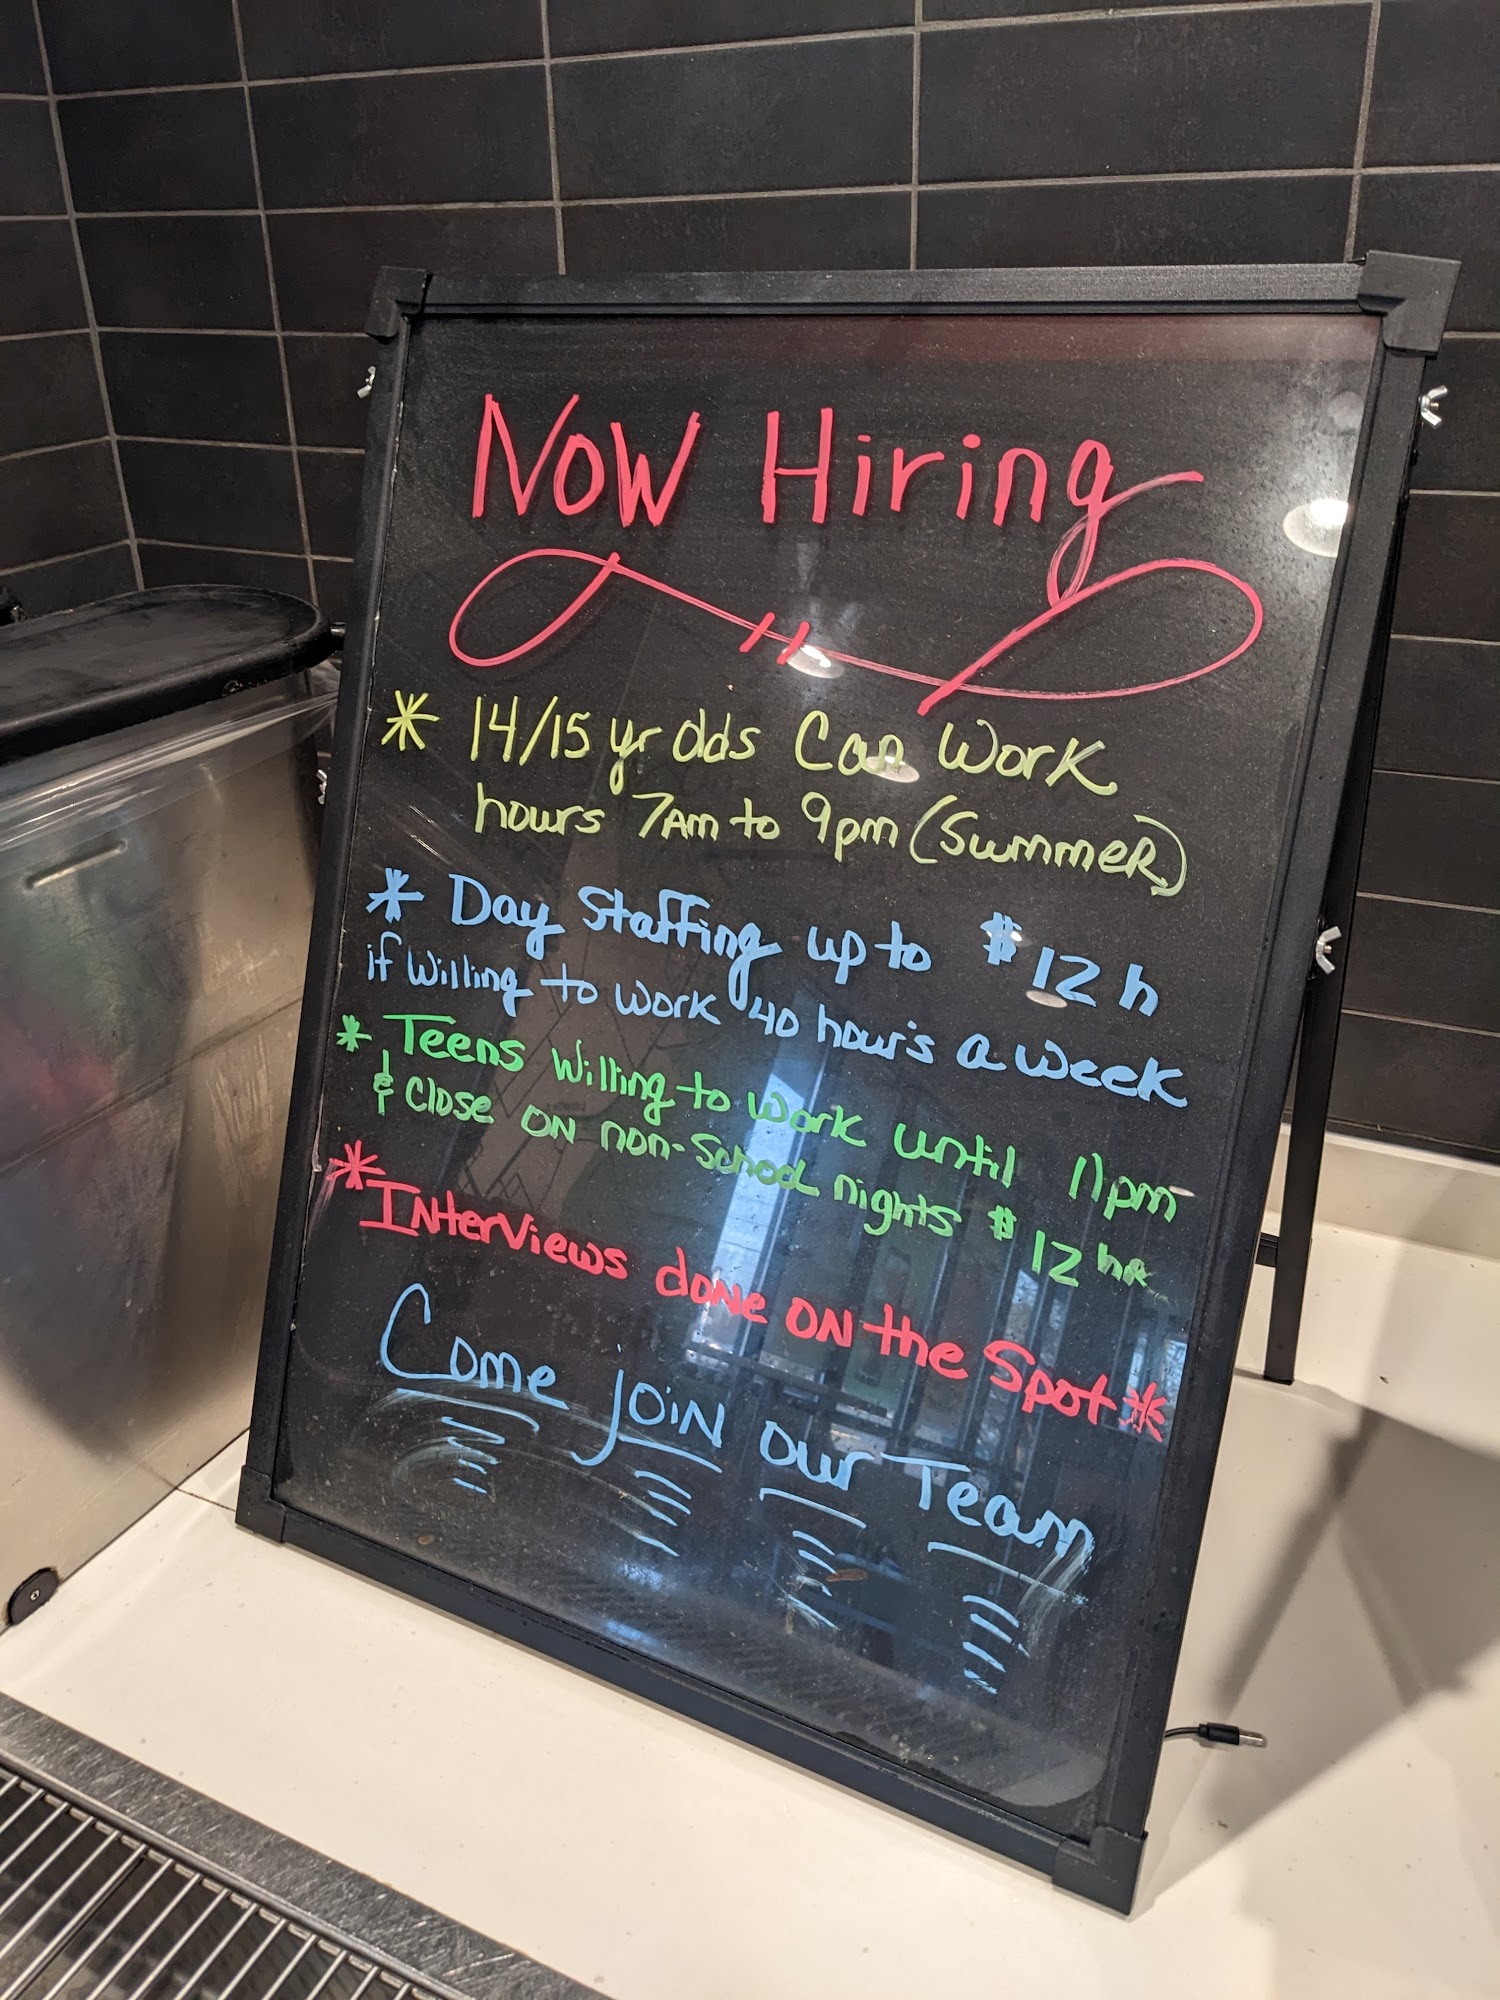 Now Hiring
* 14/15 yr olds Can Work
hours 7am to 9pm (Summer)
* Day Staffing up to $12 h
if willing to work 40 hour's a week
* Teens willing to work until 11pm
& Close on non-School nights $12 hr
* Interviews done on the Spot *
Come join our Team